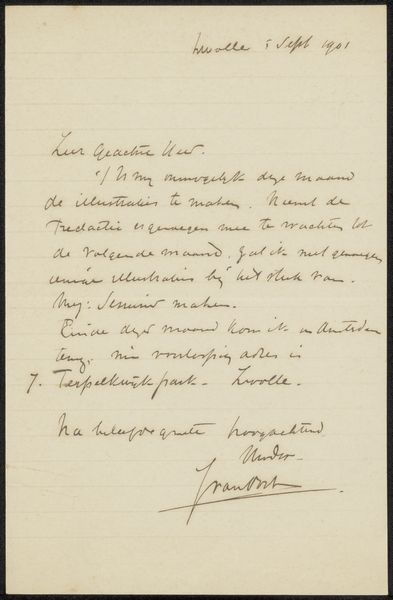 Zwolle 5 Sept 1901
Zeer Geachte Heer.
't Is mij onmogelijk deze maand
de illustraties te maken. Neemt de
redactie er genoegen mee te wachten tot
de volgende maand, zal ik met genoegen
eenige illustraties bij het stuk van
Mej: maken.
Einde dezer maand kom ik in Amsterdam
terug. mijn voorloopig adres is
7. Terpelkwijkpark - Zwolle.
Na beleefde groete hoogachtend
J van Oort